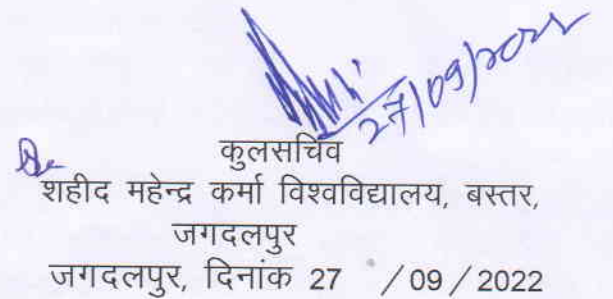 27/09/2022
कुलसचिव
शहीद महेन्द्र कर्मा विश्वविद्यालय, बस्तर,
जगदलपुर
जगदलपुर, दिनांक 27 / 09 / 2022